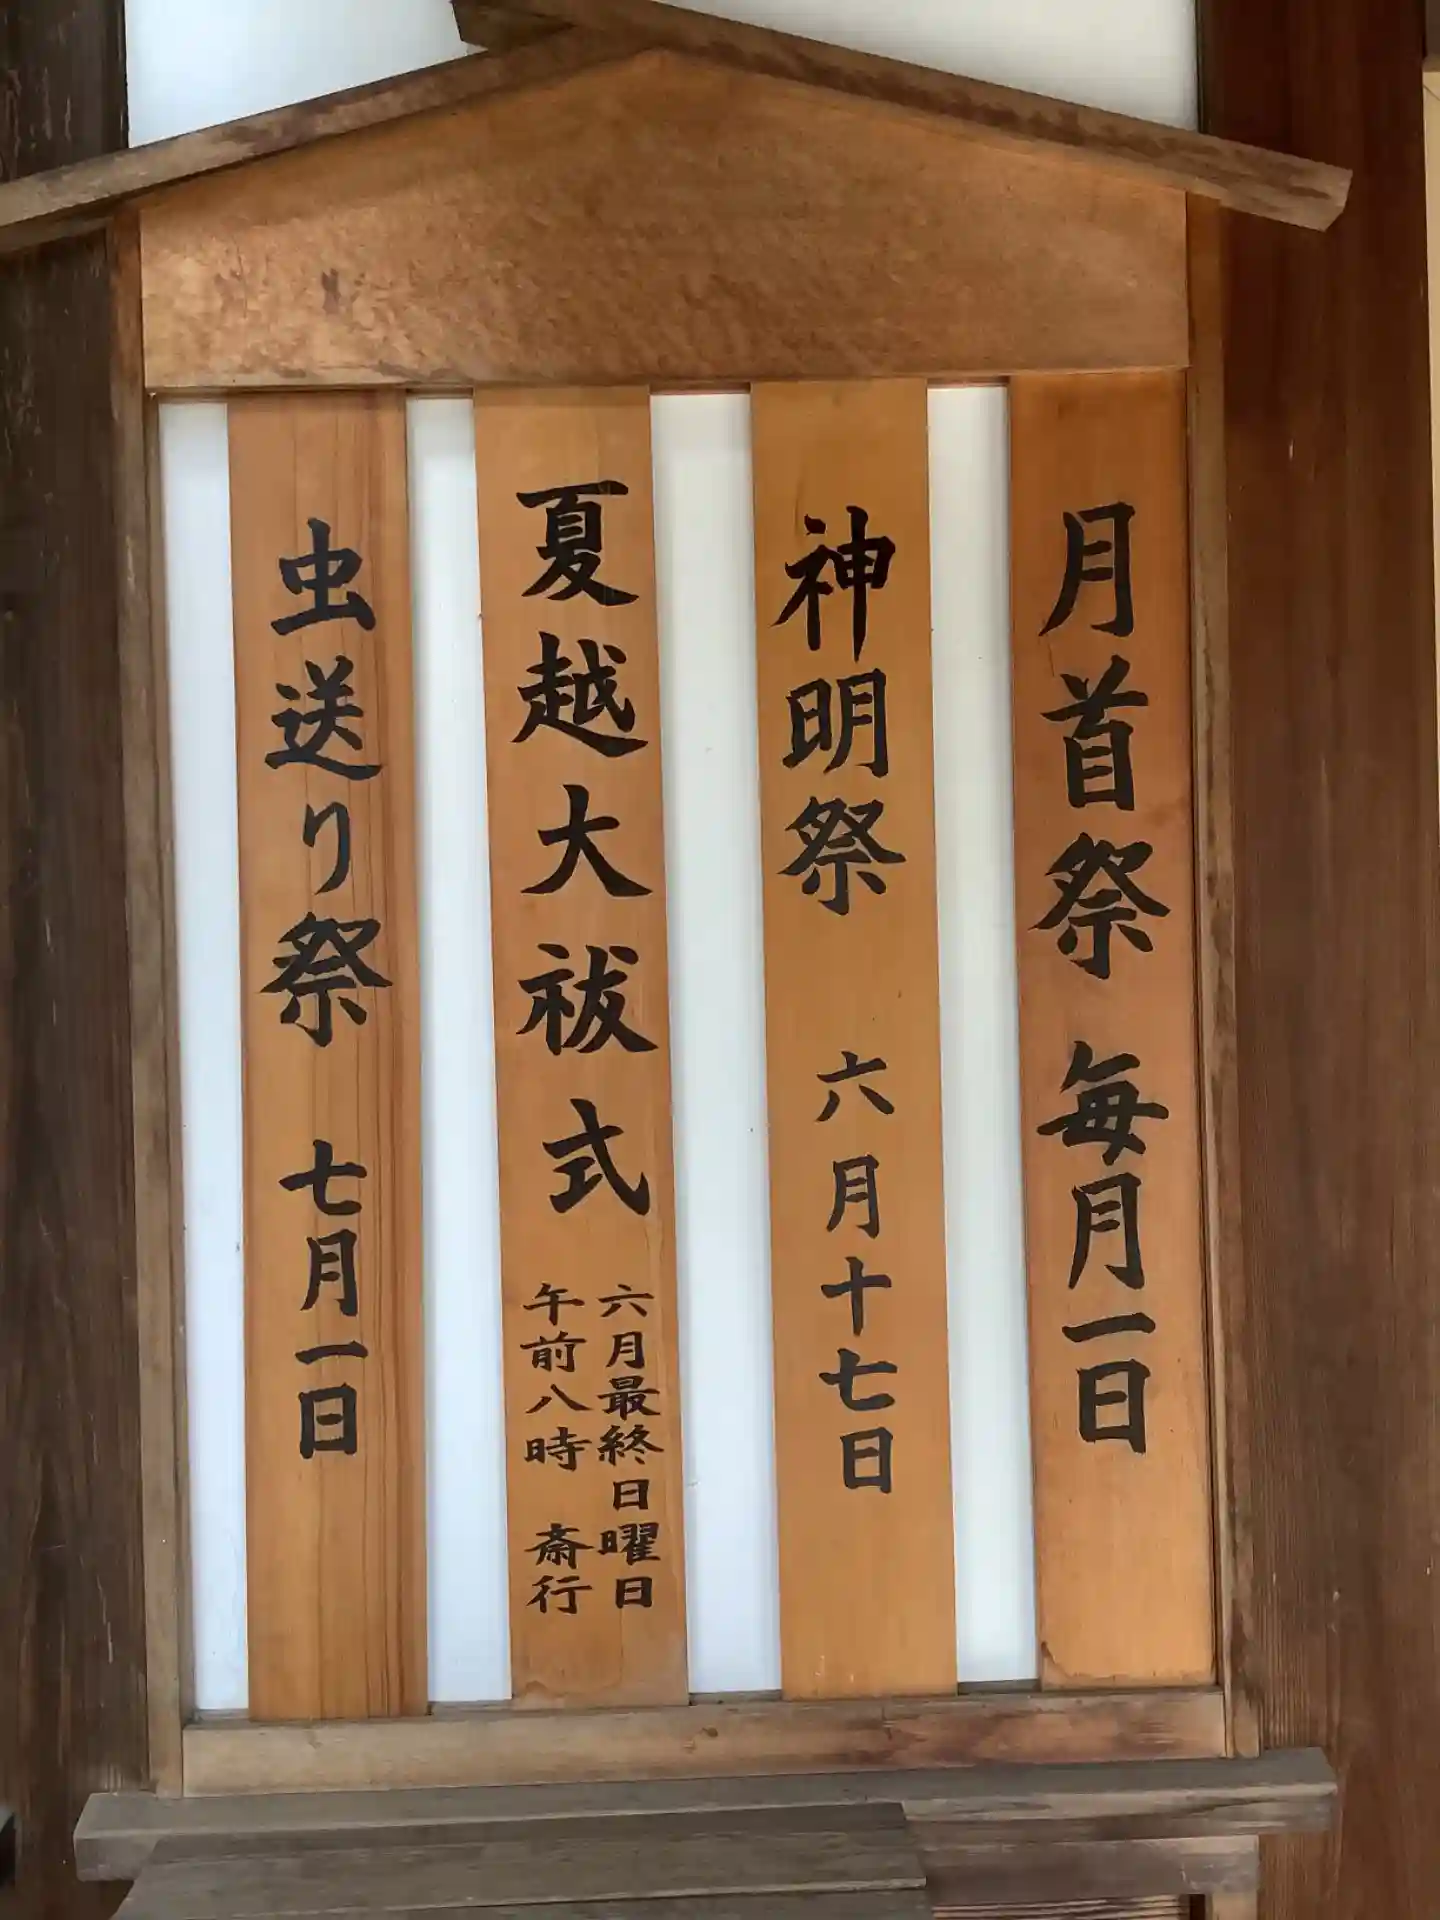 月首祭 毎月一日
神明祭 六月十七日
夏越大祓式
六月最終日曜日
午前八時 斎行
虫送り祭 七月一日